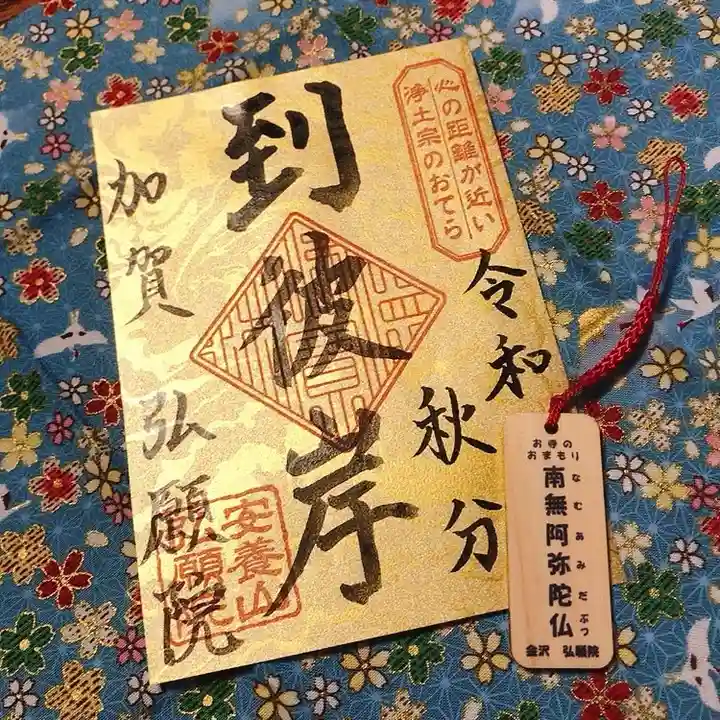 心の距離が近い
浄土宗のおてら
令和
秋分
到彼岸
加賀 弘願院
安養山
お寺の
おまもり
南無阿弥陀仏
なむあみだぶつ
金沢 弘願院